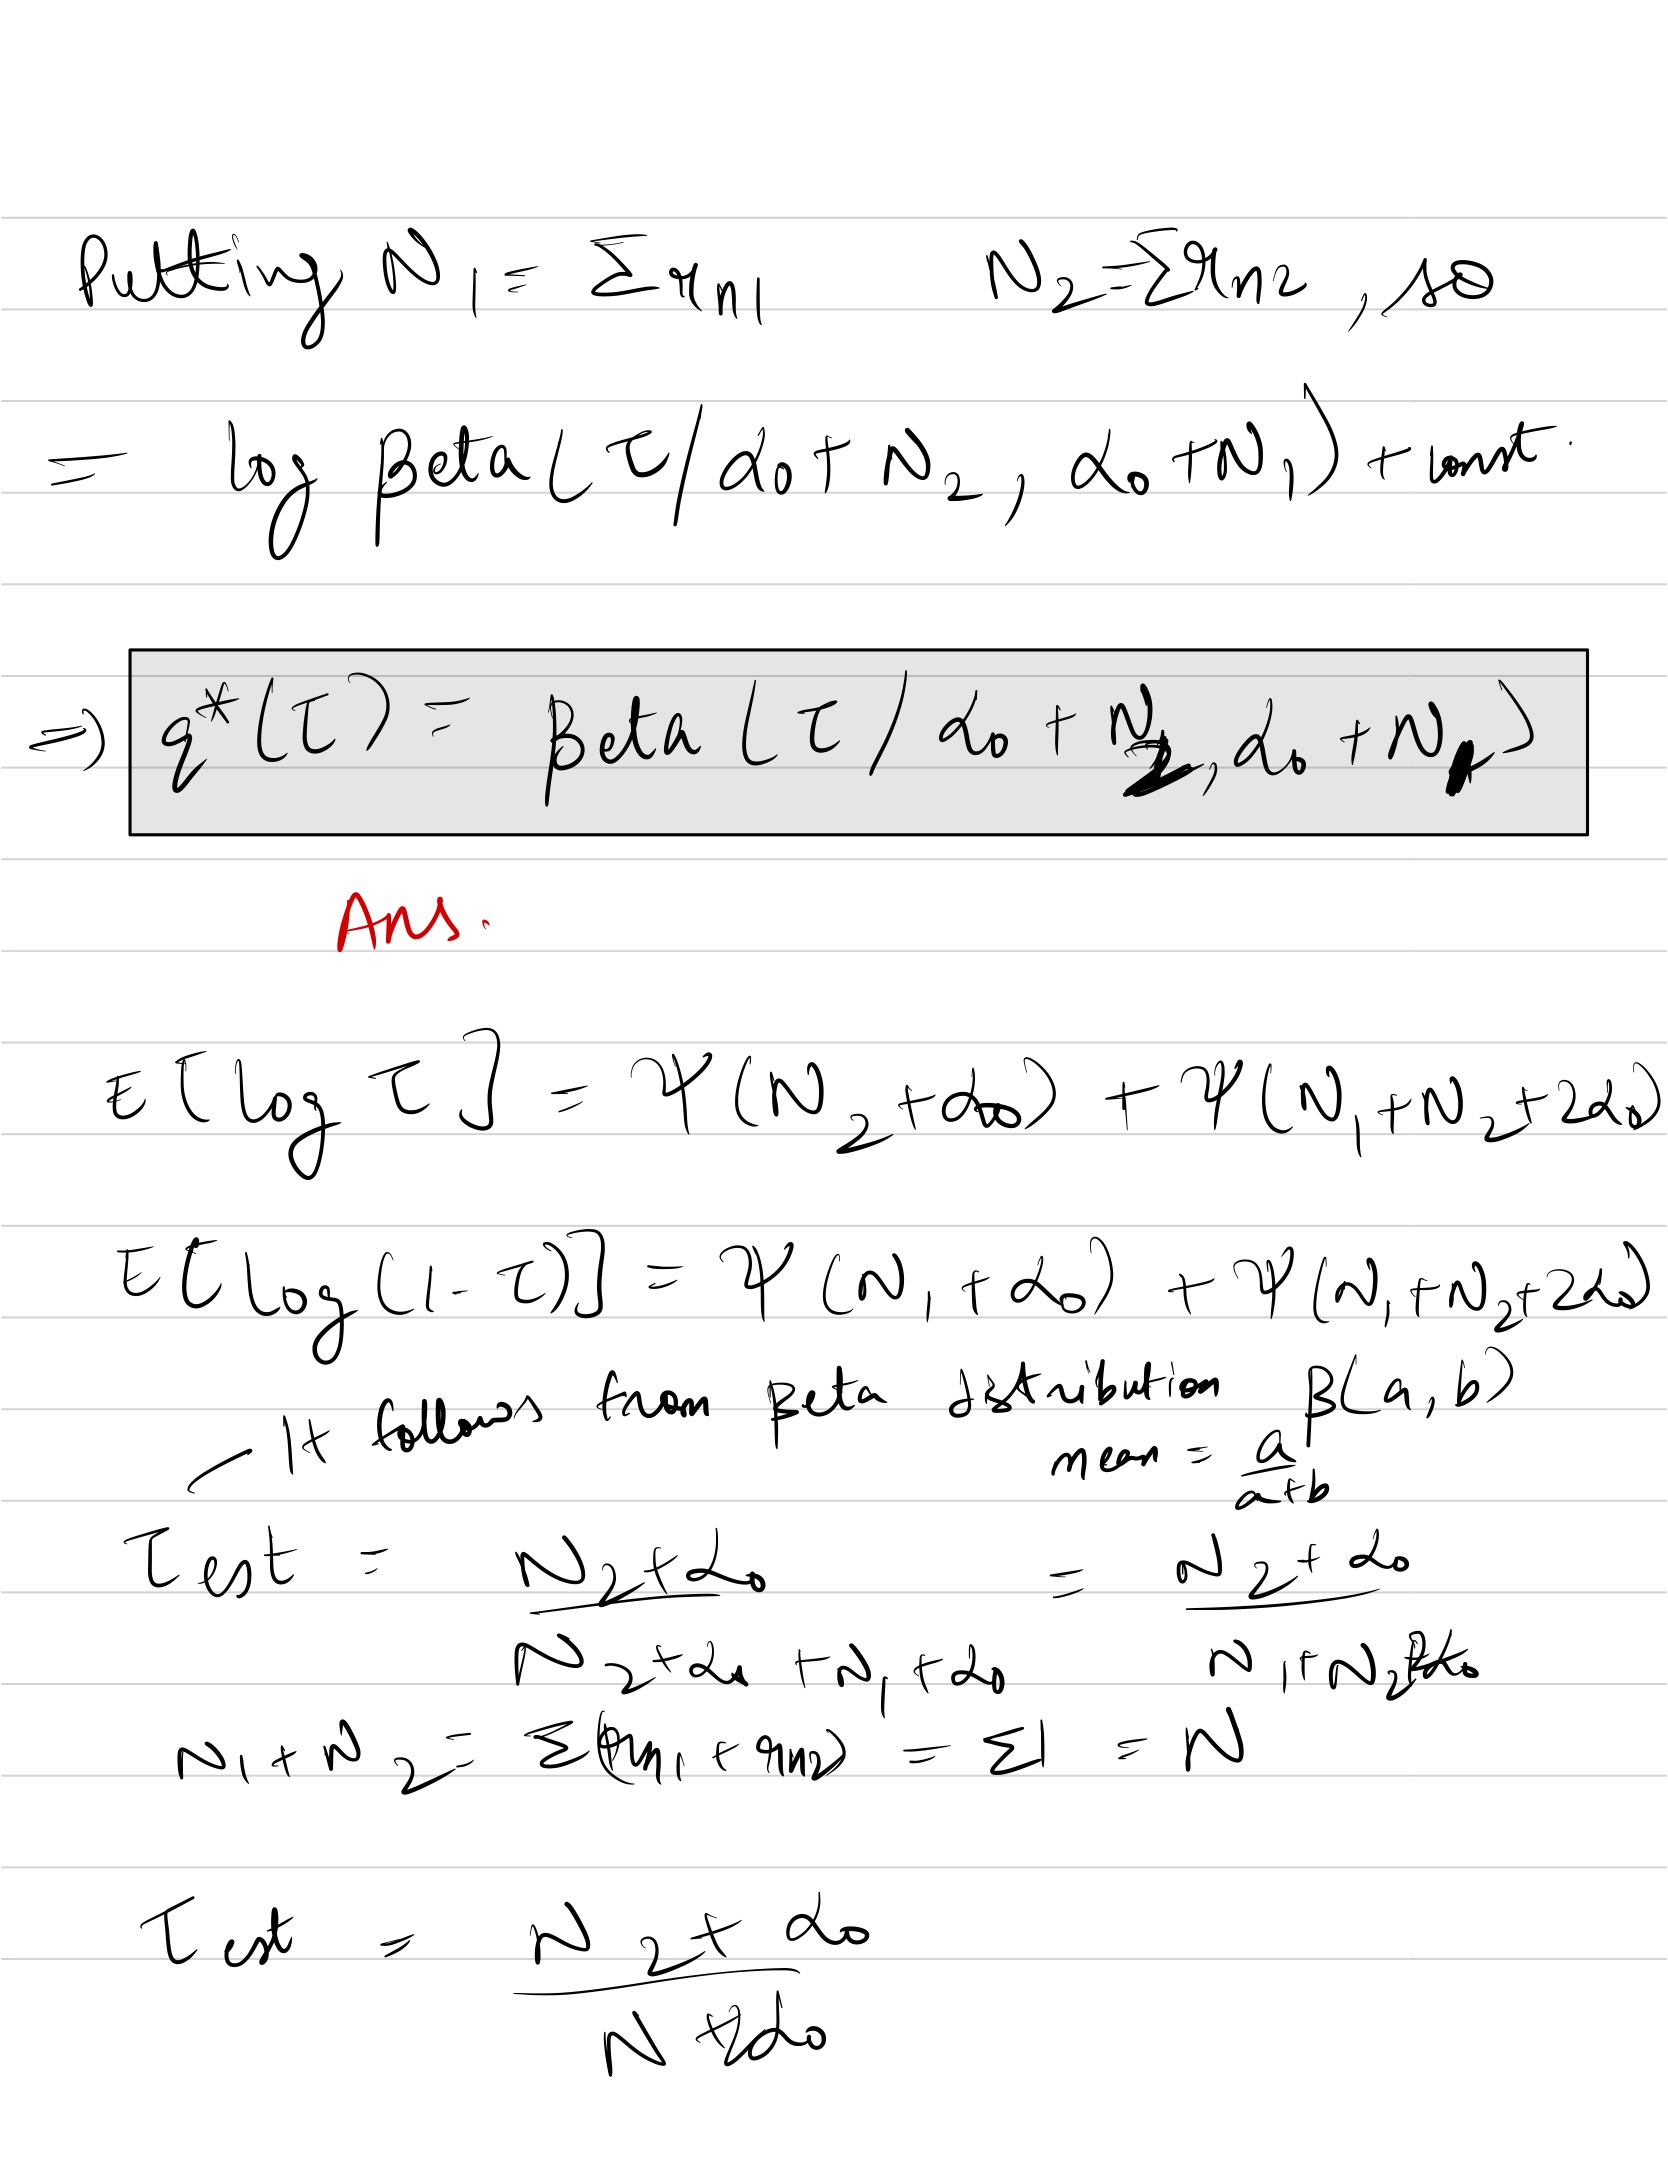 Putting N₁ = Σ r_{n1} N₂ = Σ r_{n2}, so
= log Beta(τ/α₀ + N₂, α₀ + N₁) + const.
⇒ q*(τ) = Beta(τ/α₀ + N₂, α₀ + N₁)
Ans.
E[log τ] = Ψ(N₂ + α₀) + Ψ(N₁ + N₂ + 2α₀)
E[log(1 - τ)] = Ψ(N₁ + α₀) + Ψ(N₁ + N₂ + 2α₀)
It follows from Beta distribution β(a, b)
mean = a/(a+b)
τ_est = (N₂ + α₀)/(N₂ + α₀ + N₁ + α₀) = (N₂ + α₀)/(N₁ + N₂ + 2α₀)
N₁ + N₂ = Σ(r_{n1} + r_{n2}) = Σ1 = N
τ_est = (N₂ + α₀)/(N + 2α₀)